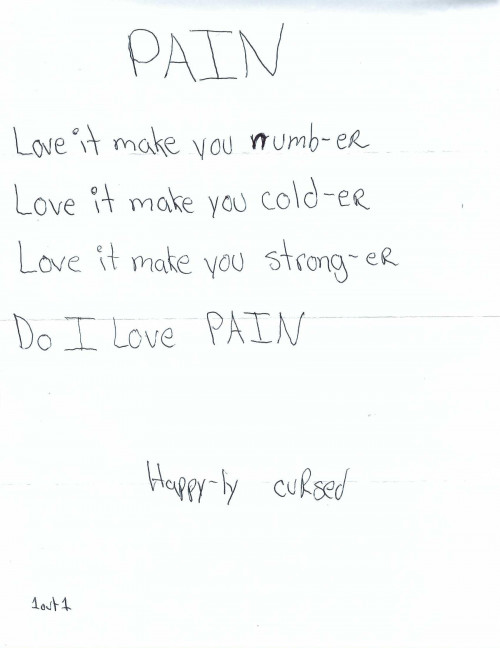 PAIN
Love it make you numb-er
Love it make you cold-er
Love it make you strong-er
Do I Love PAIN
Happy-ly cursed
1 out 1